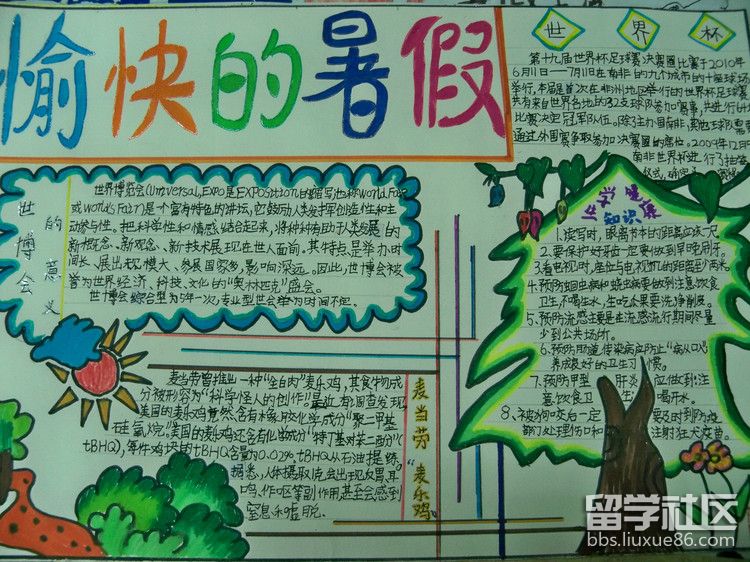 愉快的暑假
世界杯
第十九届世界杯足球赛决赛圈比赛于2010年
6月11日——7月11日在南非的九个城市的十座球场
举行,本届是首次在非洲地区举行的世界杯足球赛
共有来自世界各地的32支球队参加赛事,共进行64
比赛决定冠军队伍。除了主办国南非,其他球队需
通过外围赛争取参加决赛圈的席位。2009年12月
南非世界杯进行了抽签
仪式,
世博会的意义
世界博览会(Universal,Expo是EXPOSITION的缩写,也称World Fair
或World's Fair)是一个富有特色的讲坛,它鼓励人类发挥创造性和主
动参与性。把科学性和情感结合起来,将种种有助于人类发展的
新概念、新观念、新技术展现在世人面前。其特点是举办时
间长、展出规模大、参展国家多、影响深远。因此,世博会被
誉为世界经济、科技、文化的“奥林匹克”盛会。
世博会综合型为5年一次,专业型世会举办时间不定。
健康
知识展
1.读写时,眼离书本的距离应该一尺
2.要保护好牙齿一定要做到早晚刷牙。
3.看电视时,座位与电视机的距离至少两米
4、预防蛔虫病和蛲虫病要做到注意饮食
卫生不喝生水,生吃瓜果要洗净削皮。
5、预防流感主要是在流感流行期间尽量
少到公共场所。
6、预防肠道传染病应防止“病从口
养成良好的卫生习惯。
7、预防甲型肝炎应做到:注
意饮食卫生喝开水。
8、被狗咬后一定要及时到防疫
部门处理伤口和注射狂犬疫苗。
麦当劳“麦乐鸡”
麦当劳曾推出一种“全白肉”麦乐鸡,其食物成
分被形容为“科学怪人的创作”最近有调查发现
美国的麦乐鸡竟然含有橡胶化学成分“聚二甲基
硅氧烷。”美国的麦乐鸡还含有化学成分“特丁基对苯二酚”(
tBHQ),每件鸡块的tBHQ含量为0.02%。tBHQ从石油提炼。
据悉,人体摄取1克会出现反胃、耳
鸣、作呕等副作用,甚至会感到
窒息和虚脱。
留学社区
bbs.liuxue86.com